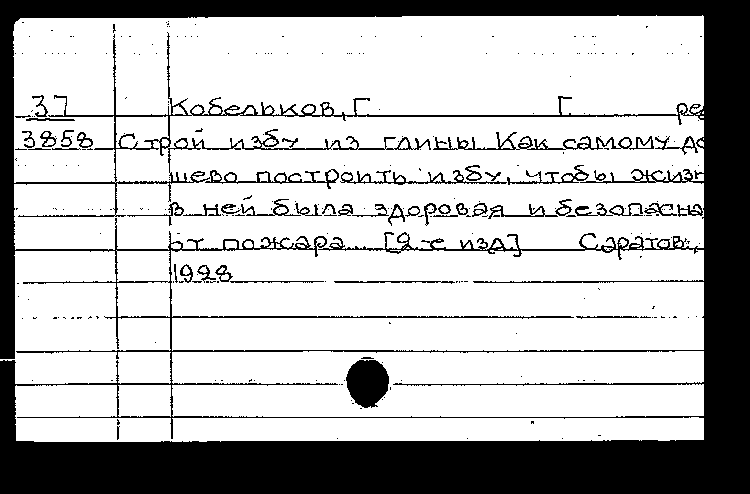 37 Кобельков, Г. Г. ред
3858 Строй избу из глины Как самому де
шево построить избу, чтобы жизн
в ней была здоровая и безопасна
от пожара [2-е изд] Саратов,
1928